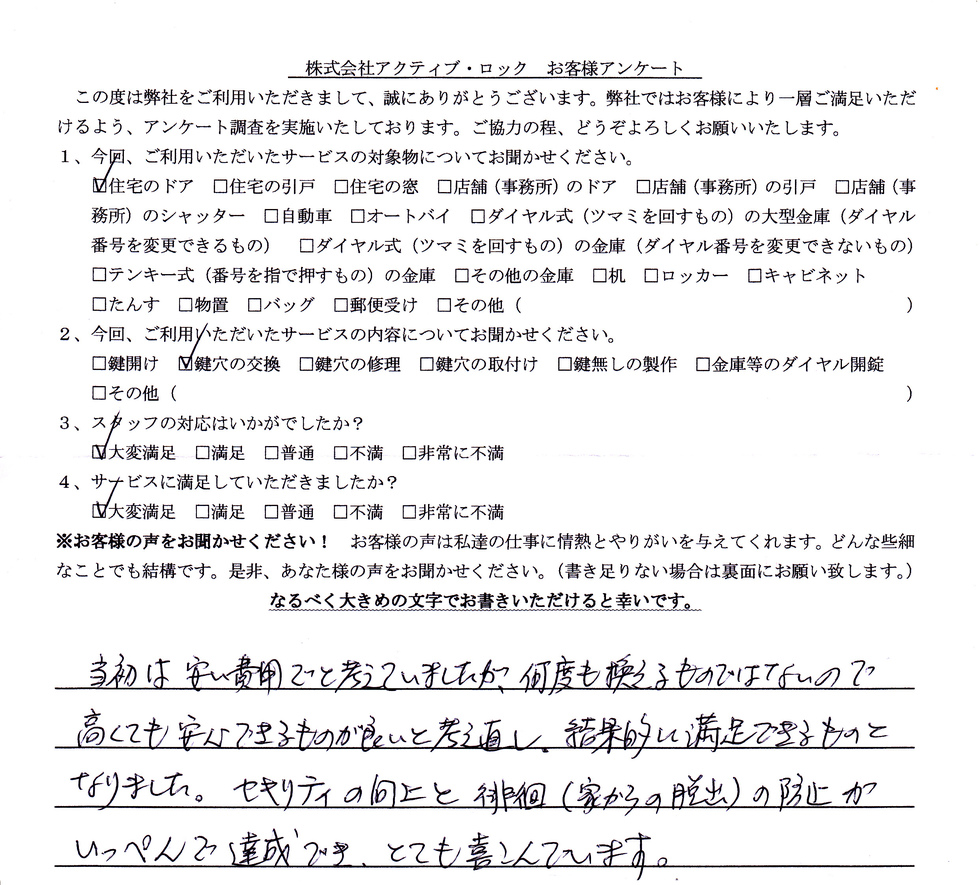 株式会社アクティブ・ロック　お客様アンケート
この度は弊社をご利用いただきまして、誠にありがとうございます。弊社ではお客様により一層ご満足いただ
けるよう、アンケート調査を実施いたしております。ご協力の程、どうぞよろしくお願いいたします。
1、今回、ご利用いただいたサービスの対象物についてお聞かせください。
☑住宅のドア　□住宅の引戸　□住宅の窓　□店舗（事務所）のドア　□店舗（事務所）の引戸　□店舗（事
務所）のシャッター　□自動車　□オートバイ　□ダイヤル式（ツマミを回すもの）の大型金庫（ダイヤル
番号を変更できるもの）　□ダイヤル式（ツマミを回すもの）の金庫（ダイヤル番号を変更できないもの）
□テンキー式（番号を指で押すもの）の金庫　□その他の金庫　□机　□ロッカー　□キャビネット
□たんす　□物置　□バッグ　□郵便受け　□その他（　　　）
2、今回、ご利用いただいたサービスの内容についてお聞かせください。
□鍵開け　☑鍵穴の交換　□鍵穴の修理　□鍵穴の取付け　□鍵無しの製作　□金庫等のダイヤル開錠
□その他（　　　）
3、スタッフの対応はいかがでしたか？
☑大変満足　□満足　□普通　□不満　□非常に不満
4、サービスに満足していただきましたか？
☑大変満足　□満足　□普通　□不満　□非常に不満
※お客様の声をお聞かせください！　お客様の声は私達の仕事に情熱とやりがいを与えてくれます。どんな些細
なことでも結構です。是非、あなた様の声をお聞かせください。（書き足りない場合は裏面にお願い致します。）
なるべく大きめの文字でお書きいただけると幸いです。
当初は安い費用でと考えていましたが、何度も換えるものではないので
高くても安心できるものが良いと考え直し、結果的に満足できるものと
なりました。セキリティの向上と徘徊（家からの脱出）の防止が
いっぺんで達成でき、とても喜こんでいます。